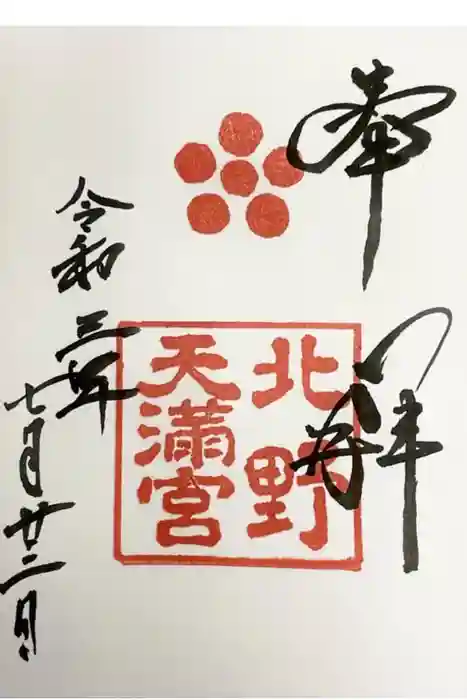 奉拝
北野
天満宮
令和三年
七月廿二日